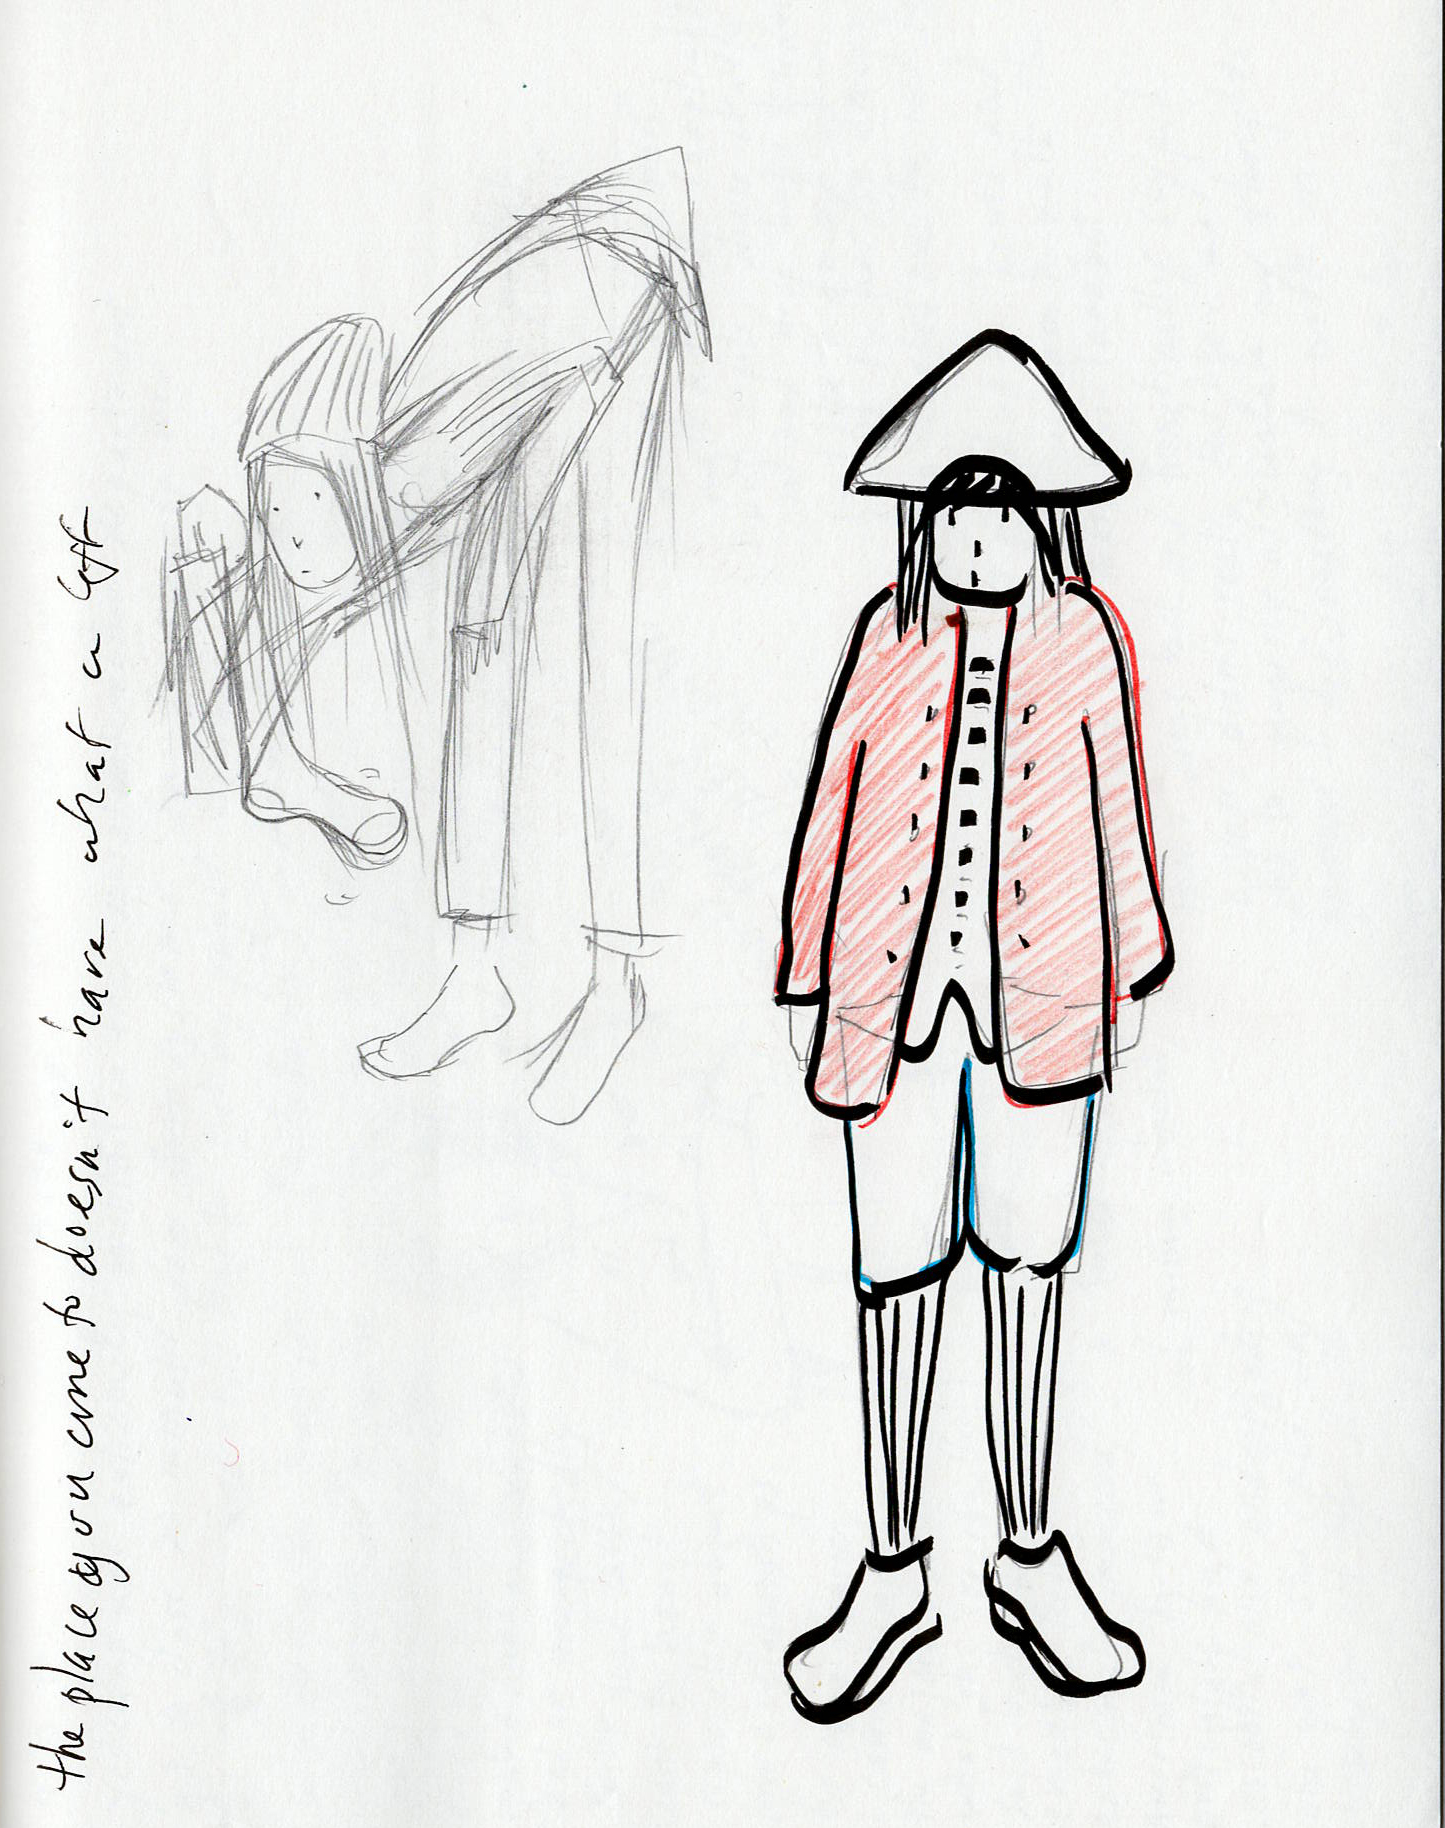 the place you came to doesn't have what u left